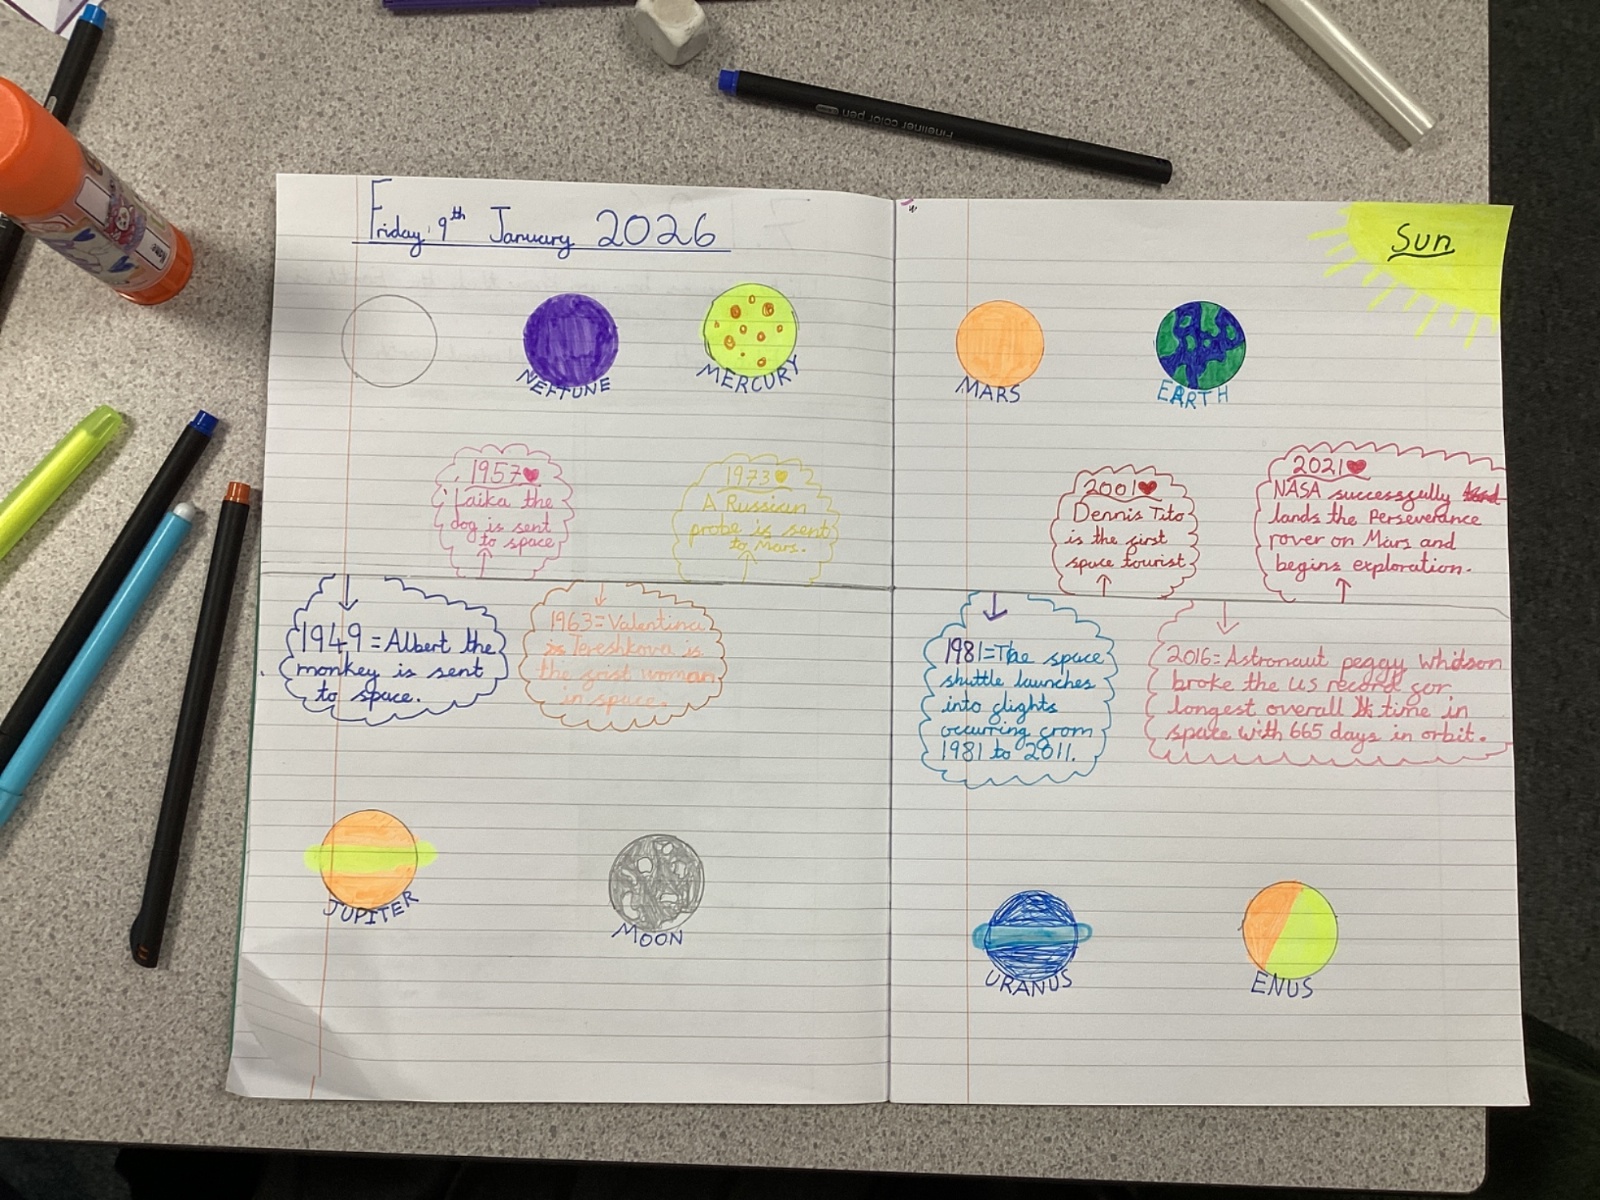 Fineliner color pen
Friday 9th January 2026
Sun
NEPTUNE
MERCURY
MARS
EARTH
1957
Laika the
dog is sent
to space
1973
A Russian
probe is sent
to Mars.
2001
Dennis Tito
is the first
space tourist
2021
NASA successfully
lands the Perseverance
rover on Mars and
begins exploration.
1949 = Albert the
monkey is sent
to space.
1963 = Valentina
is Tereshkova is
the first woman
in space.
1981 = The space
shuttle launches
into flights
occurring from
1981 to 2011.
2016 = Astronaut peggy whitson
broke the US record for
longest overall time in
space with 665 days in orbit.
JUPITER
MOON
URANUS
ENUS